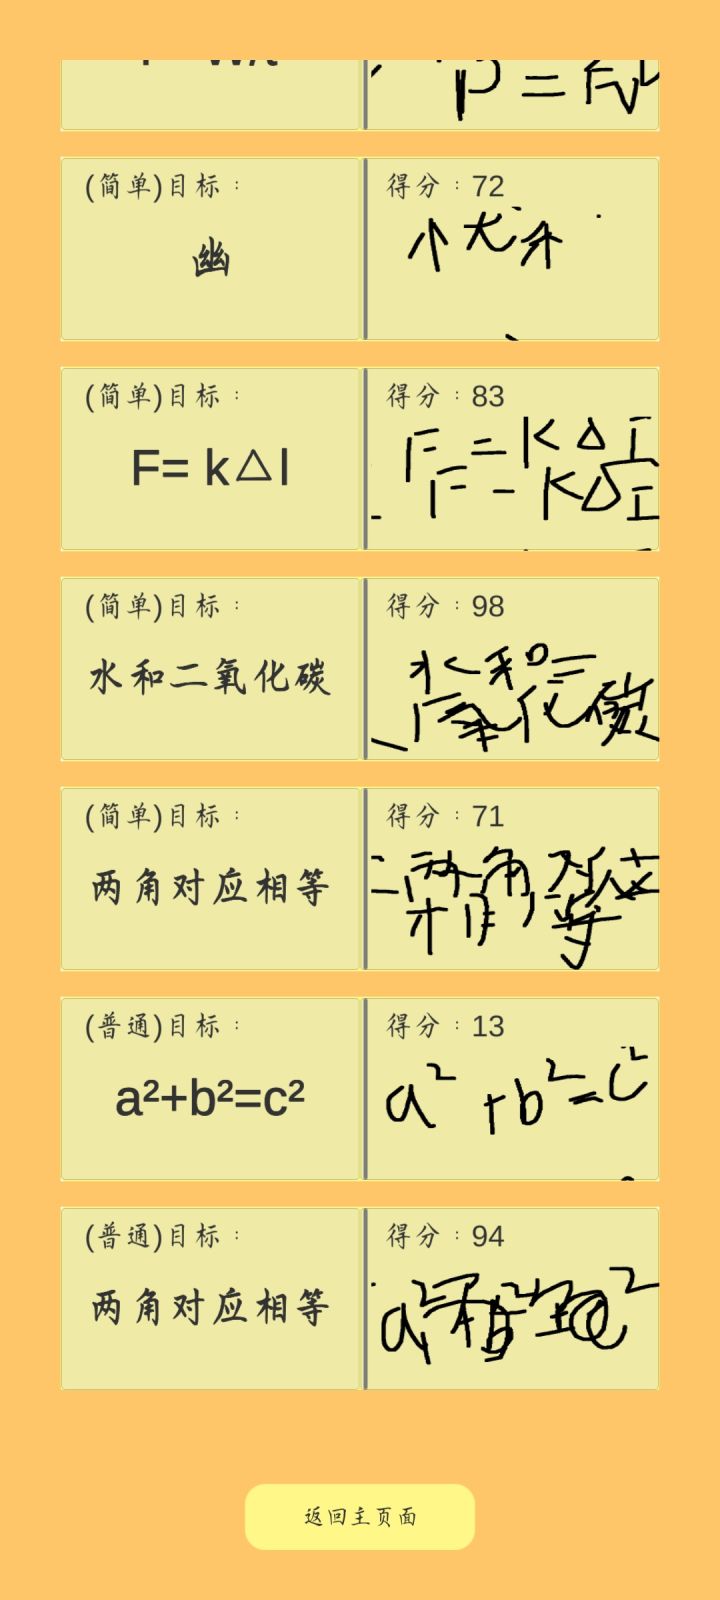 P = Fv
(简单)目标：
得分：72
幽
个 大 个
(简单)目标：
得分：83
F= k△l
F = K Δ I
F - K Δ I
(简单)目标：
得分：98
水和二氧化碳
水和二
氧化碳
(简单)目标：
得分：71
两角对应相等
两角对应
相等
(普通)目标：
得分：13
a²+b²=c²
a² + b² = c²
(普通)目标：
得分：94
两角对应相等
返回主页面